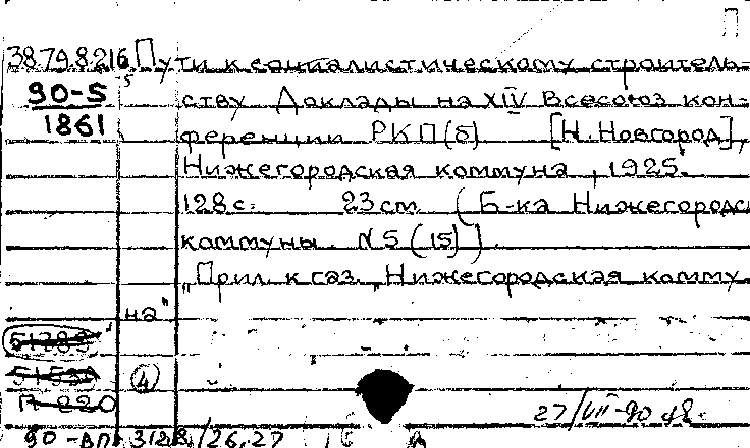 П
3879.8216 Пути к социалистическому строитель-
90-5
1861
ству Доклады на XIV Всесоюз кон-
ференции РКП(б) [Н.Новгород],
Нижегородская коммуна, 1925.
128с. 23см (Б-ка Нижегородс
коммуны. N5 (15)).
"Прил. к газ. "Нижегородская комму
на"
51789
4
П-220
27/VII-90